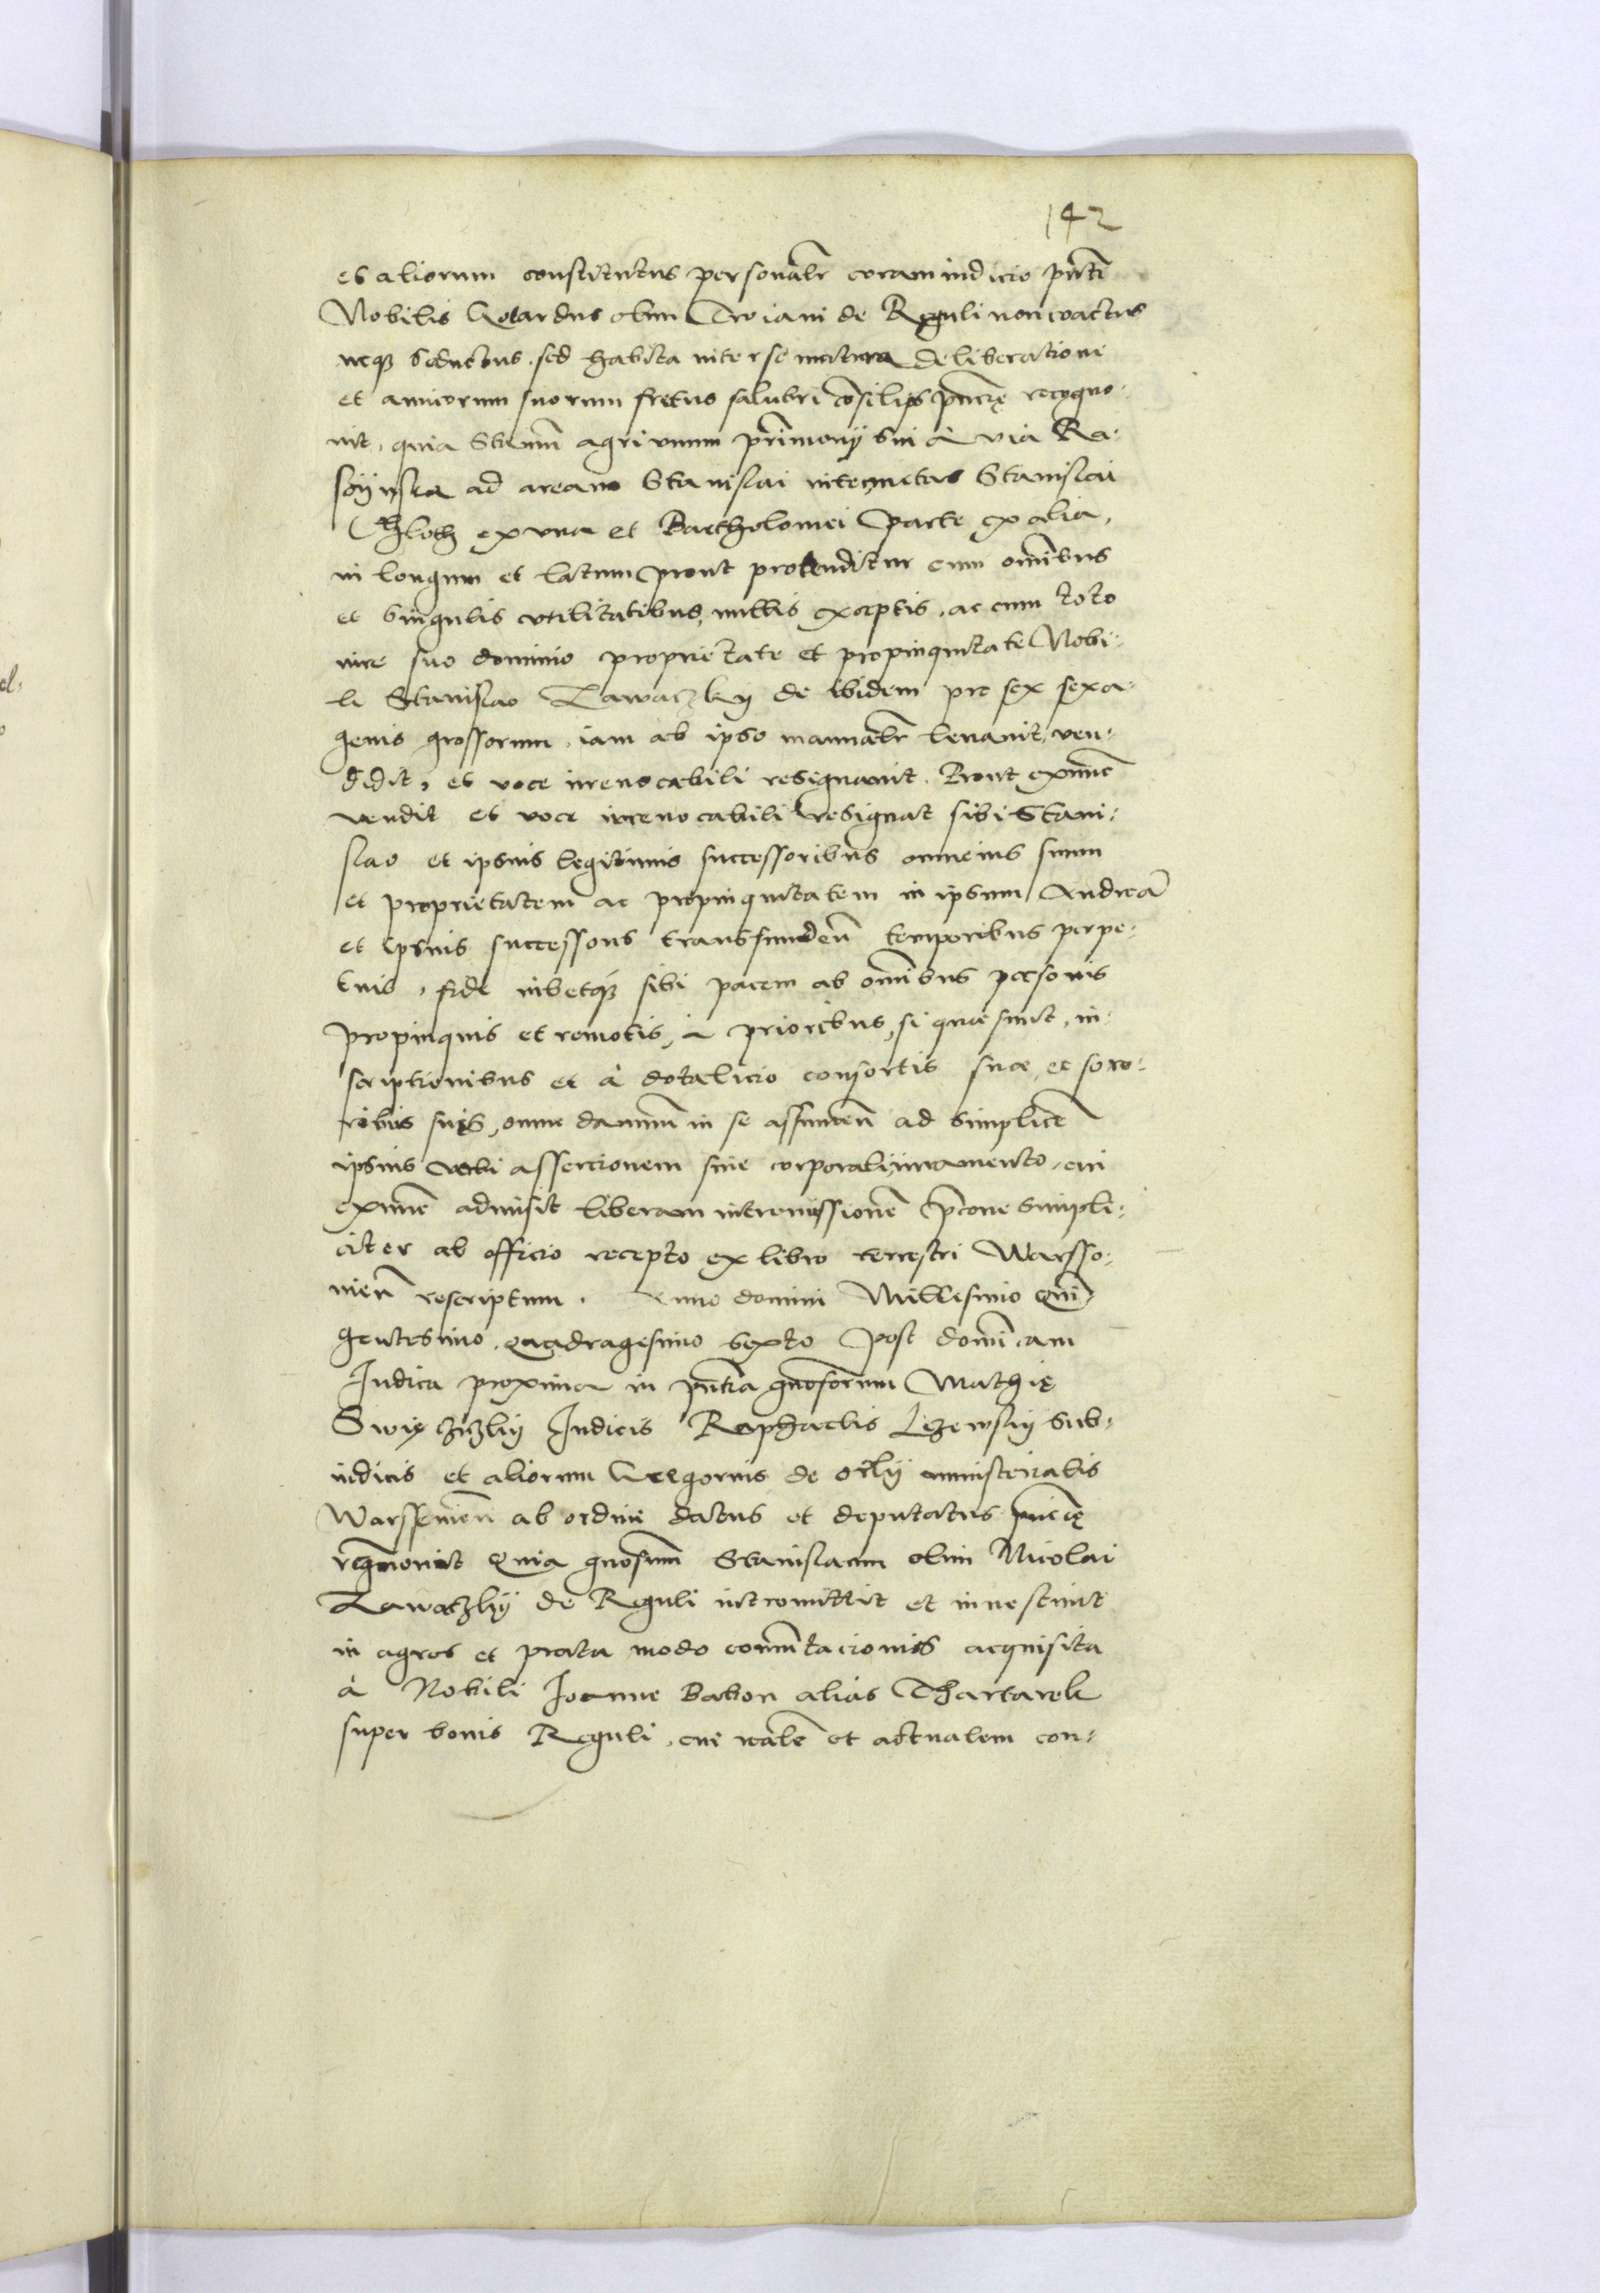 142
et aliorum constitutus personalr coram iudicio pnti
Nobilis Gotardus olim Troiani de Reguli non coactus
neq seductus sed habita inter se matura deliberatione
et amicorum suorum fretus salubri cōsilio pncię recogno-
uit, quia agri vnum prīmonÿ sui à via Ra-
ad aream Stanislai inter metas Stanislai
ex vna et Bartholomei parte ex alia,
in longum et latum prout protenditur cum omībus
et singulis vtilitatibus, nullis exceptis, ac cum toto
iure suo dominio proprietate et propinquitate Nobi-
li Stanislao Zawaczkÿ de ibidem pro sex sexa-
genis grossorum, iam ab ipso manualr leuauit, ven-
didit, et voce irreuocabili resignauit. Prout exnūc
vendit et voce irreuocabili resignat sibi Stani-
slao et ipsius legitimis successoribus omne ius suum
et proprietatem ac propinquitatem in ipsum Andreā
et ipsius successors transfunden temporibus perpe-
tuis, fide iubetq sibi pacem ab omībus personis
propinquis et remotis, a prioribus, si quae sunt, in-
scriptionibus et à dotalicio consortis suae, et soro-
ribus suis, omne damnū in se assumen ad simplicē
ipsius verbi assertionem sine corporali iuramento, cui
exnunc admisit liberam intromissionē Pcone simpli-
citer ab officio recepto ex libro terrestri Warsso-
uien rescriptum. Anno domini Millesimo Quin
gentesimo Quadragesimo sexto Post domicam
Iudica proxima in pntia gnosorum Mathię
Iudicis Raphaelis sub-
iudicis et aliorum Gregorius de ministerialis
Warssouien ab ordine datus et deputatus pncię
Quia gnosum Stanislaum olim Nicolai
Zawaczkÿ de Reguli intromittit et inuestiuit
in agros et prata modo commūtacionis acquisita
à Nobili Ioanne Babon alias Thartarek
super bonis Reguli, cui realē et actualem con-
el-